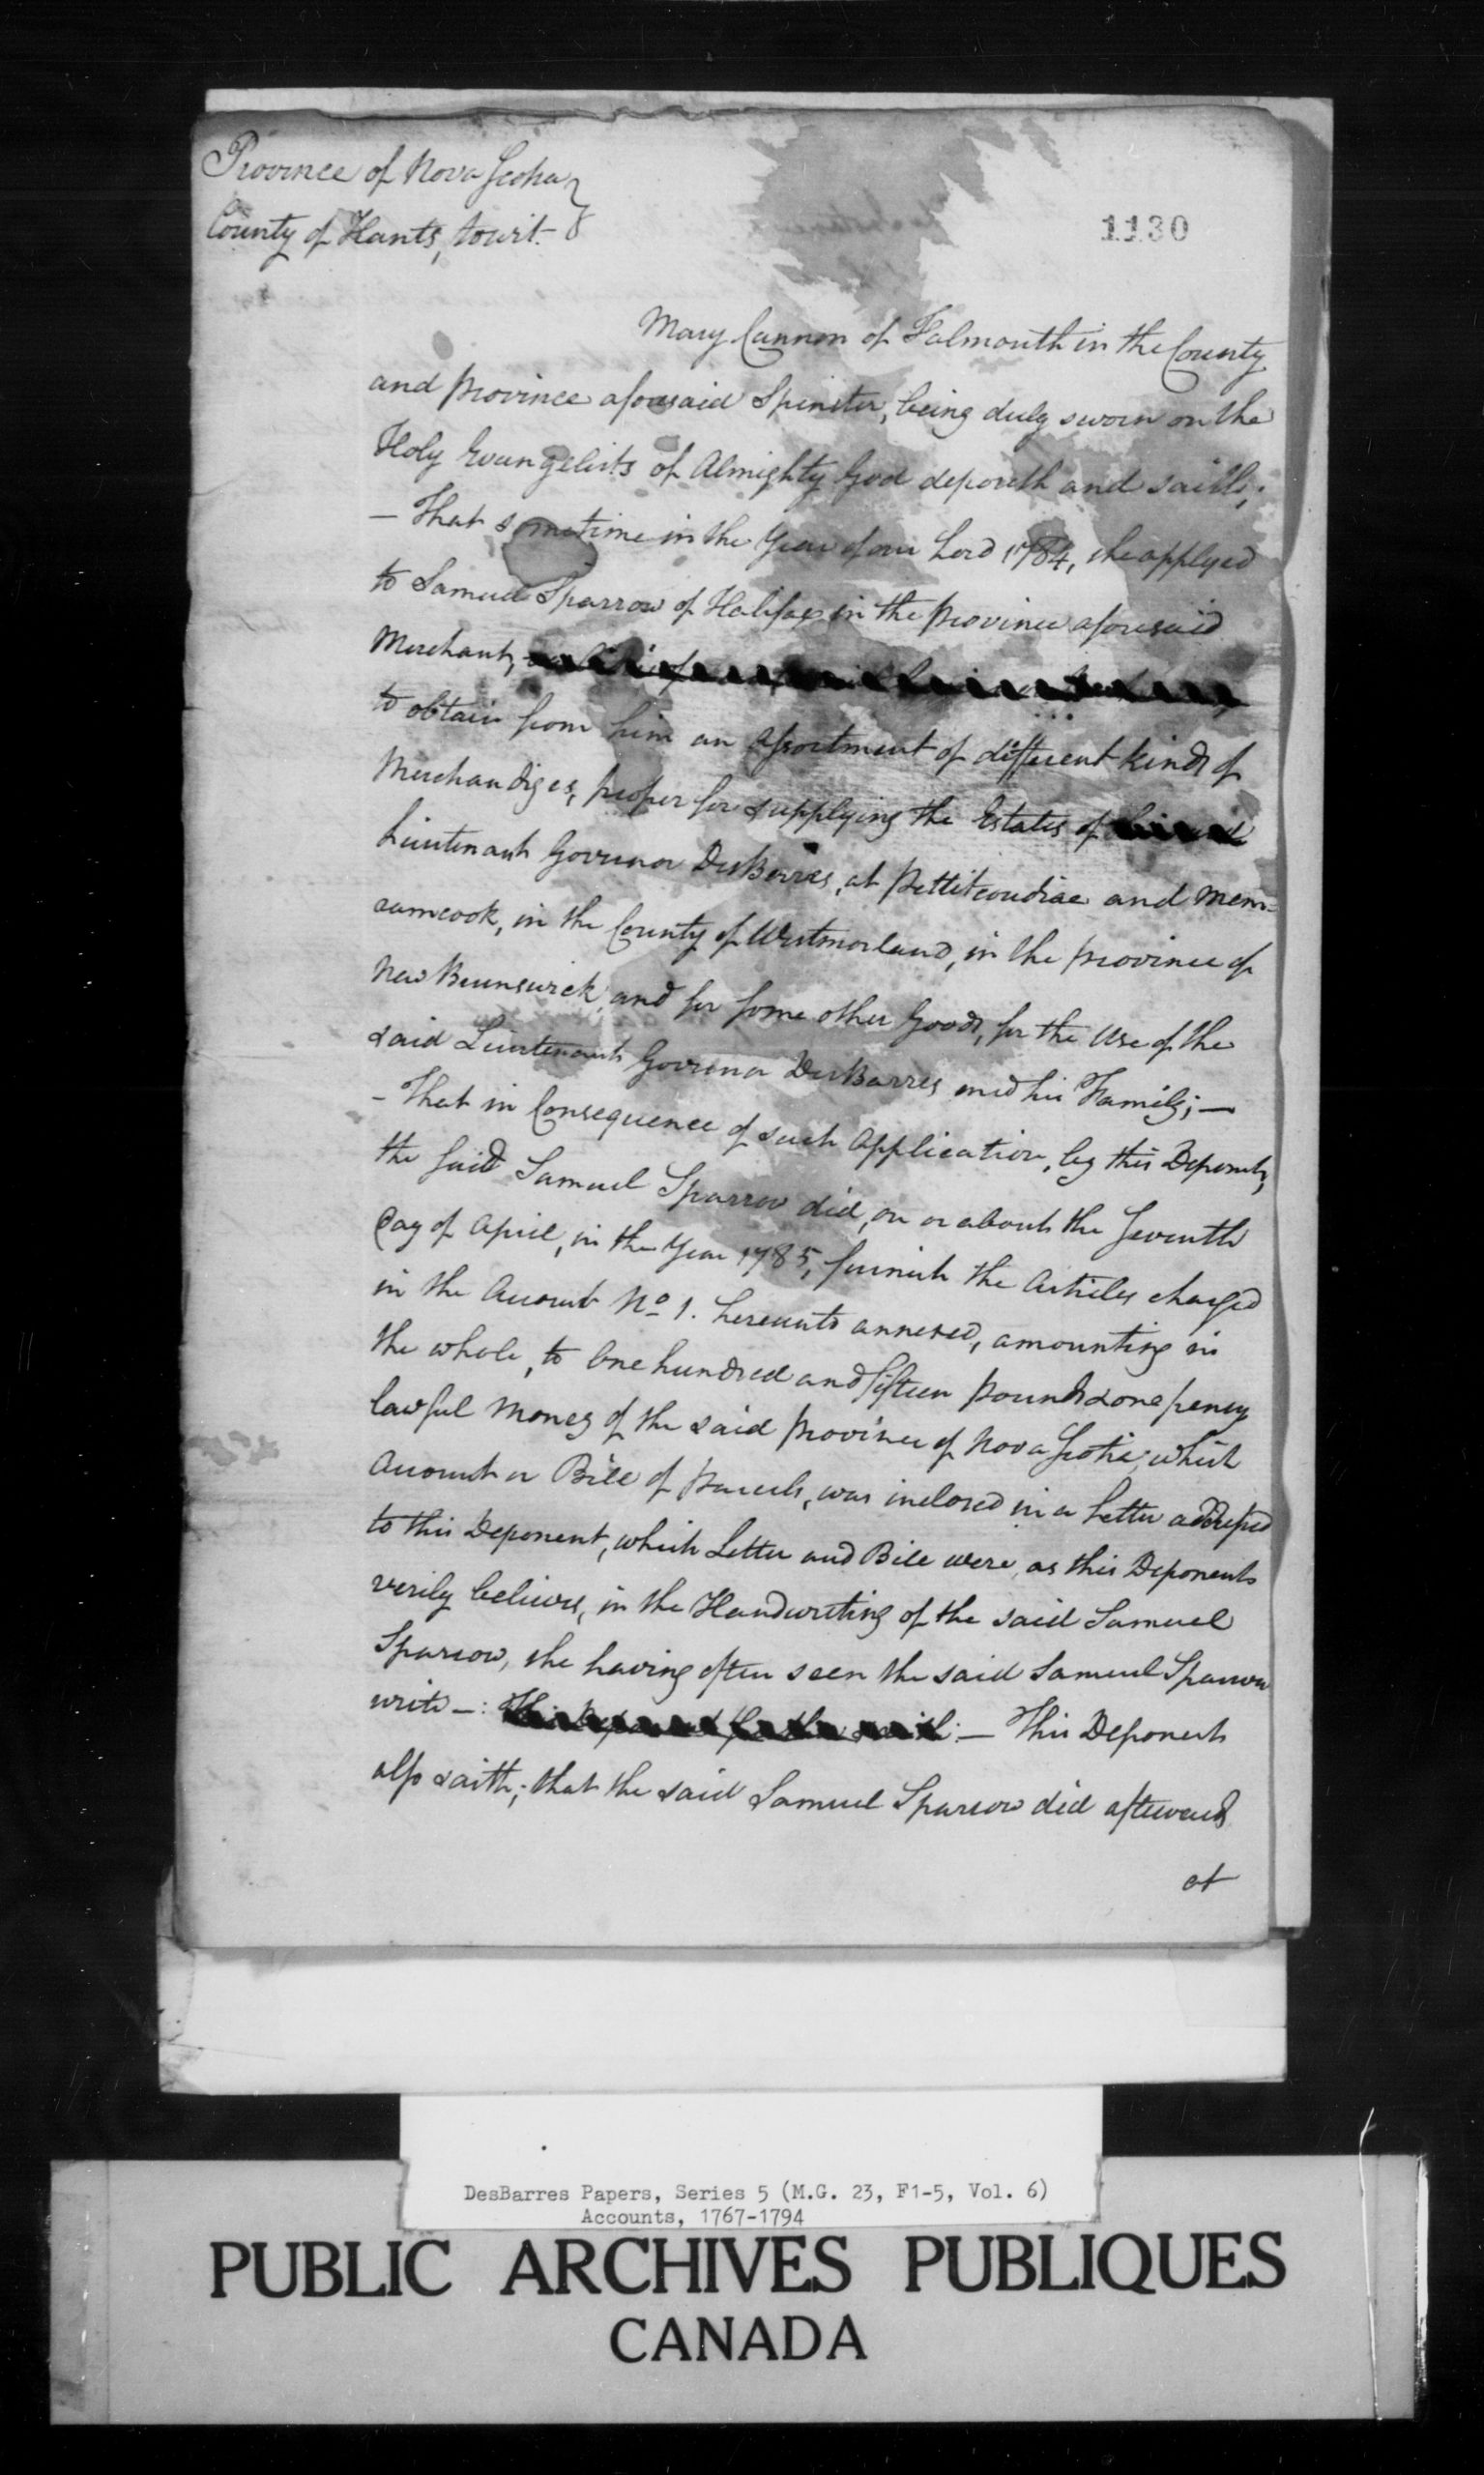 Province of Nova Scotia }
County of Hants, towit. }
1130
Mary Cannon of Falmouth in the County
and Province aforesaid Spinster, being duly sworn on the
Holy Evangelists of Almighty God deposeth and saith;
— That sometime in the Year of our Lord 1784, she applyed
to Samuel Sparrow of Halifax in the Province aforesaid
Merchant,
to obtain from him an Assortment of different kinds of
Merchandizes, proper for supplying the Estates of
Lieutenant Governor DesBarres, at Pettitcoudiac and Mem=
ramcook, in the County of Westmorland, in the Province of
New Brunswick, and for some other Goods, for the Use of the
said Lieutenant Governor DesBarres and his Family; —
- That in Consequence of such Application, by this Deponent,
the said Samuel Sparrow did, on or about the Seventh
Day of April, in the Year 1785, furnish the Articles charged
in the Account No 1. hereunto annexed, amounting in
the whole, to One hundred and fifteen Pounds & one penny
lawful Money of the said Province of Nova Scotia, which
Account or Bill of Parcels, was inclosed in a Letter addressed
to this Deponent, which Letter and Bill were, as this Deponent
verily believes, in the Handwriting of the said Samuel
Sparrow, she having often seen the said Samuel Sparrow
write —: This Deponent further saith: — This Deponent
also saith; that the said Samuel Sparrow did afterwards
at
DesBarres Papers, Series 5 (M.G. 23, F1-5, Vol. 6)
Accounts, 1767-1794
PUBLIC ARCHIVES PUBLIQUES
CANADA